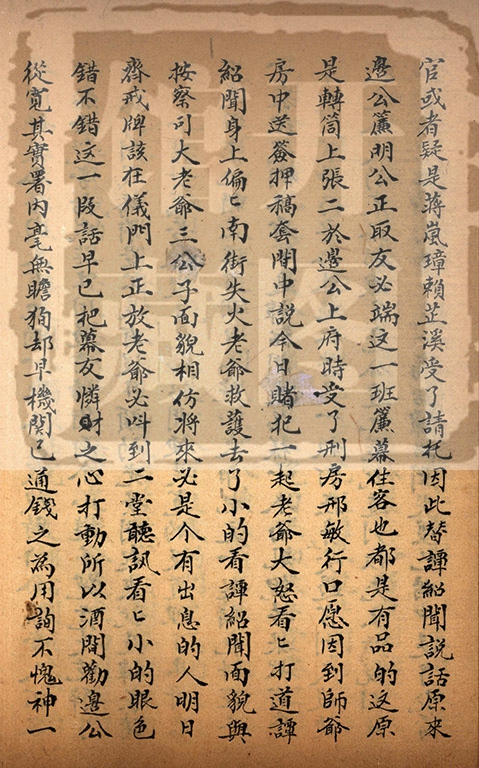 官或者疑是蔣嵐璋賴芷溪受了請托因此替譚紹聞說話原來
邊公廉明公正取友必端這一班簾幕住客也都是有品的這原
是轉筒上張二於邊公上府時受了刑房邢敏行口愿因到師爺
房中送簽押稿套閒中說今日賭犯一起老爺大怒看〻打道譚
紹聞身上偏〻南街失火老爺救護去了小的看譚紹聞面貌與
按察司大老爺三公子面貌相仿將來必是个有出息的人明日
齊戒牌該在儀門上正放老爺必呌到二堂聽訊看〻小的眼色
錯不錯这一段話早已把幕友憐財之心打動所以酒閒勸邊公
從寬其實署内毫無瞻狥却早機関已通錢之為用詢不愧神一
開封圖
館藏